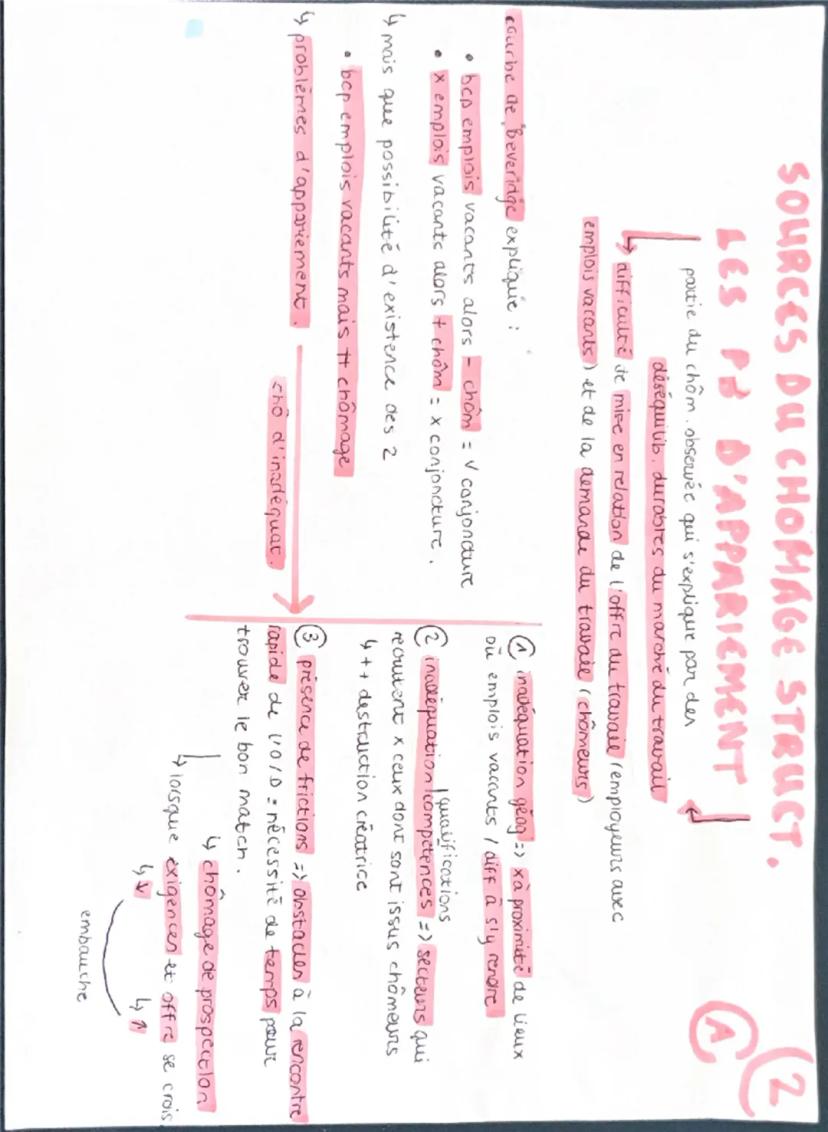 SOURCES DU CHOMAGE STRUCT.
2
LES PB D'APPARIEMENT
A
partie du chôm. observée qui s'explique par des
déséquilib. durables du marché du travail
↳ difficulté de mise en relation de l'offre du travail (employeurs avec
emplois vacants) et de la demande du travail (chômeurs)
courbe de Beveridge explique :
• bcp emplois vacants alors - chôm = v conjoncture
• x emplois vacants alors + chôm = x conjoncture.
↳ mais que possibilité d'existence des 2
• bcp emplois vacants mais ++ chômage
↳ problèmes d'appariement.
chô d'inadéquat.
① inadéquation géog => x à proximité de lieux
où emplois vacants / diff à s'y rendre
qualifications
② inadéquation compétences => secteurs qui
recrutent x ceux dont sont issus chômeurs
↳ ++ destruction créatrice
③ présence de frictions => obstacles à la rencontre
rapide de l'O/D = nécessité de temps pour
trouver le bon match.
↳ chômage de prospection
↳ lorsque exigences et offre se crois
↳ ↓ ↳ ↑
embauche